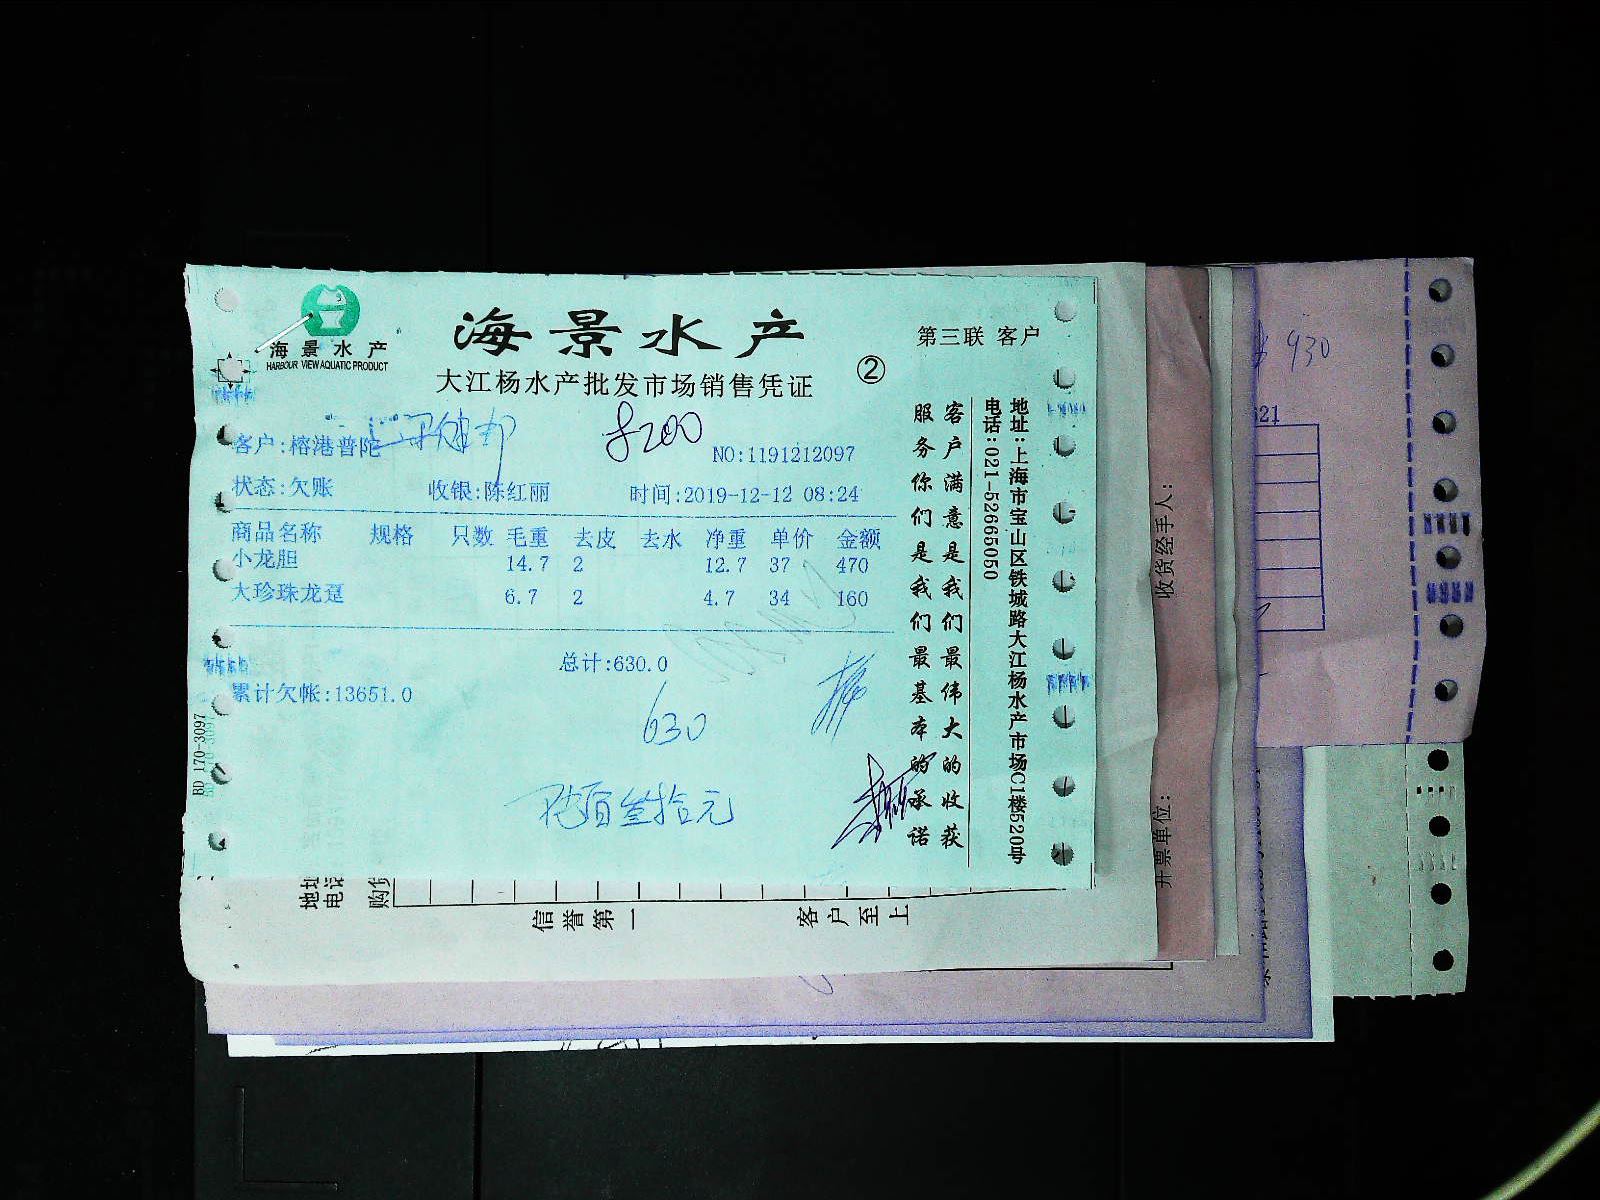 海景水产
HARBOUR VIEW AQUATIC PRODUCT
海景水产
大江杨水产批发市场销售凭证
②
第三联 客户
客户:榕港普陀
8200
NO:1191212097
状态:欠账 收银:陈红丽 时间:2019-12-12 08:24
商品名称 规格 只数 毛重 去皮 去水 净重 单价 金额
小龙胆 14.7 2 12.7 37 470
大珍珠龙趸 6.7 2 4.7 34 160
总计:630.0
累计欠帐:13651.0
630
陆百叁拾元
客户满意是我们最伟大的收获
服务你们是我们最基本的承诺
地址:上海市宝山区铁城路大江杨水产市场C1楼520号
电话:021-52665050
BD 170-3097
地址
电话
购货
信誉第一
客户至上
收货经手人:
开票单位:
930
621